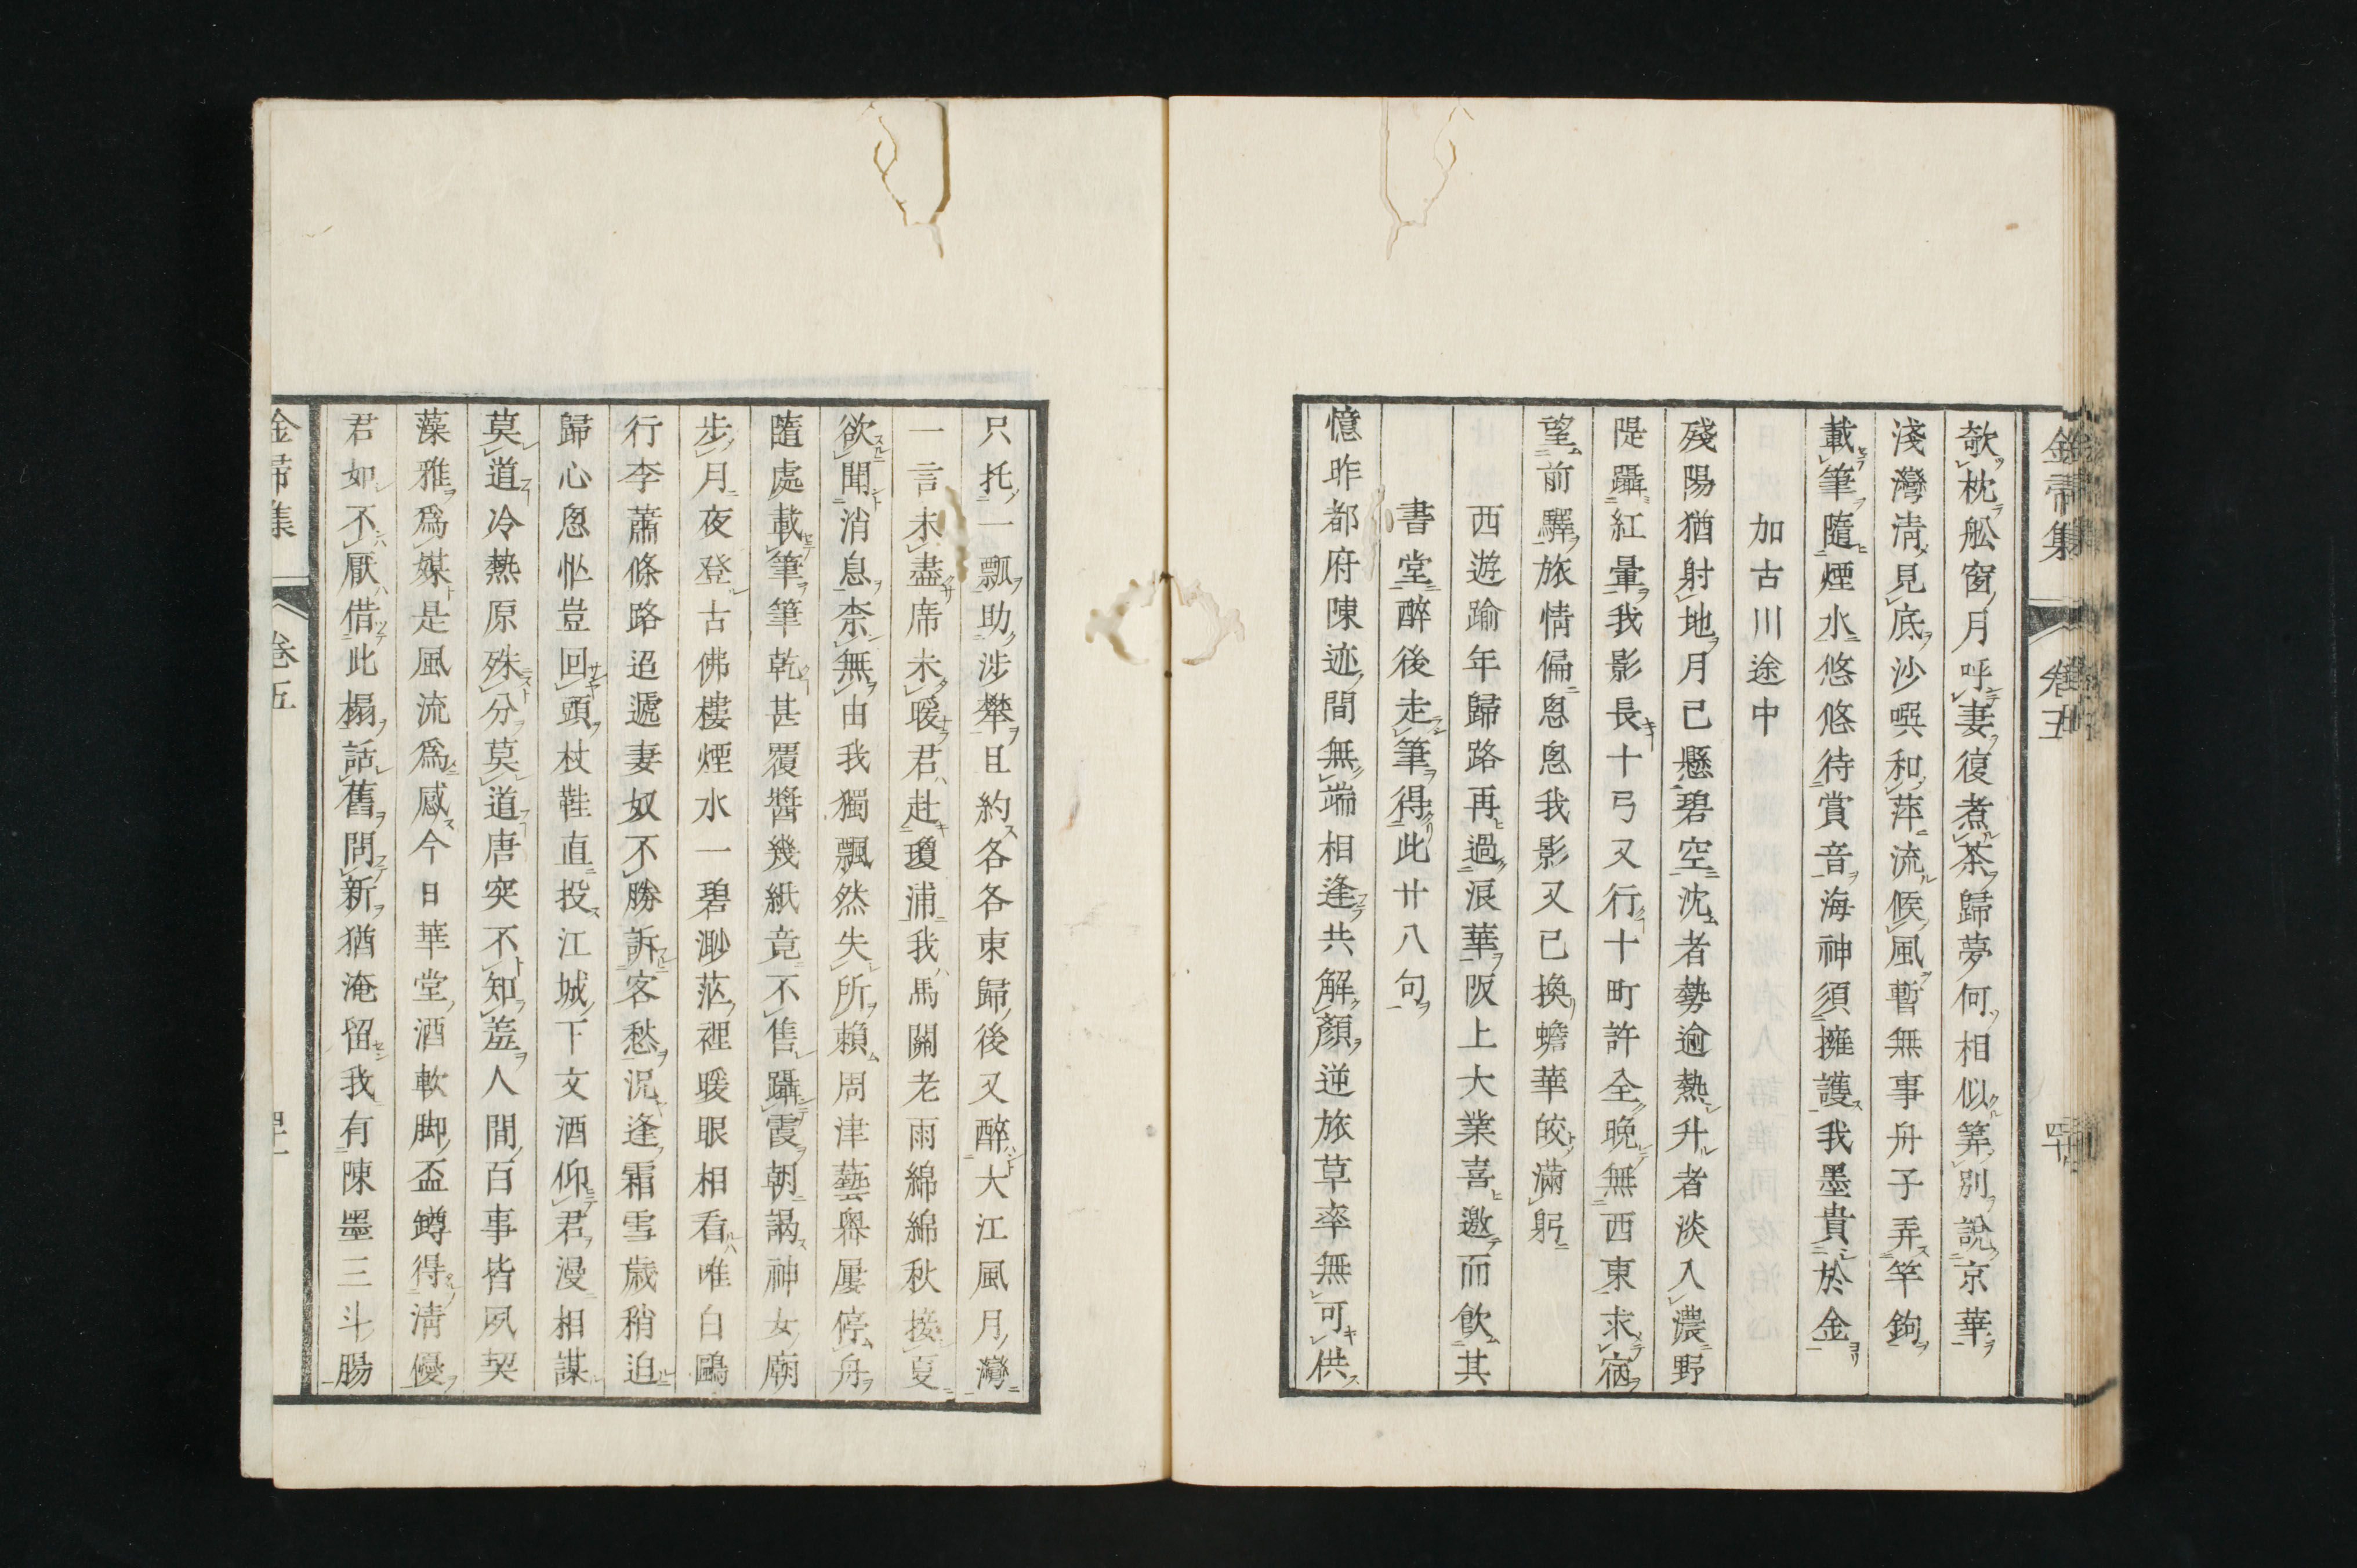 金帚集 卷五 四十
欹枕舩窗月呼妻復煮茶歸夢何相似筭別說京華
淺灣淸見底沙嘿和萍流候風暫無事舟子弄竿鉤
載筆隨煙水悠悠待賞音海神須擁護我墨貴於金
加古川途中
殘陽猶射地月已懸碧空沈者勢逾熱升者淡入濃野
隄躡紅暈我影長十弓又行十町許全晩無西東求宿
望前驛旅情偏恖恖我影又已換蟾華皎滿躬
西遊踰年歸路再過浪華阪上大業喜邀而飮其
書堂醉後走筆得此廿八句
憶昨都府陳迹間無端相逢共解顏逆旅草率無可供
只托一瓢助涉攀且約各各東歸後又醉大江風月灣
一言未盡席未暖君赴瓊浦我馬關老雨綿綿秋接夏
欲聞消息柰無由我獨飄然失所賴周津藝嶴屢停舟
隨處載筆筆乾甚覆醬幾紙竟不售躡霞朝謁神女廟
步月夜登古佛樓煙水一碧渺茫裡暖眼相看唯白鷗
行李蕭條路迢遞妻奴不勝訴客愁況逢霜雪歲稍迫
歸心恖忙豈回頭杖鞋直投江城下文酒仰君漫相謀
莫道冷熱原殊分莫道唐突不知羞人間百事皆夙契
藻雅爲媒是風流爲感今日華堂酒軟脚盃罇得淸優
君如不厭借此榻話舊問新猶淹留我有陳墨三斗腸
金帚集 卷五